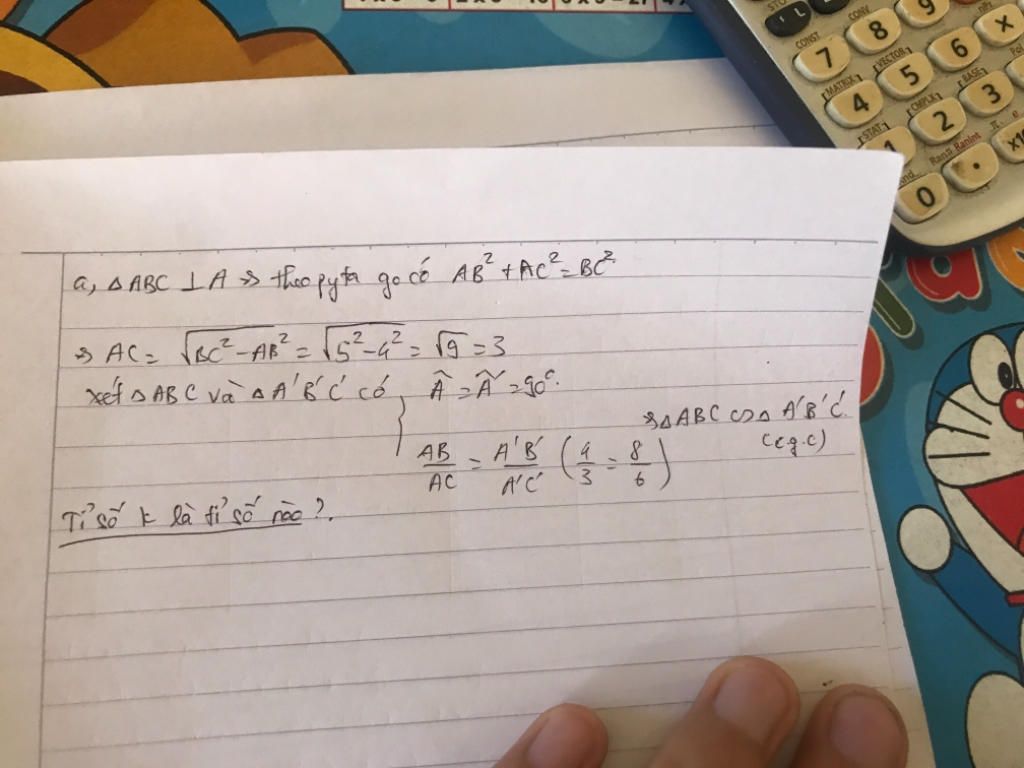 a, △ABC ⊥ A => theo pyta go có AB² + AC² = BC²
=> AC = √(BC² - AB²) = √(5² - 4²) = √9 = 3
xét △ABC và △A'B'C' có { Â = Â' = 90°.
AB/AC = A'B'/A'C' (4/3 = 8/6)
=> △ABC ∽ △A'B'C'.
(c.g.c)
Tỉ số k là tỉ số nào?.
CONST
CONV
7
8
9
MATRIX
VECTOR
4
5
6
×
STAT
CMPLX
BASE
1
2
3
Ran#
RanInt
π
e
0
.
×10